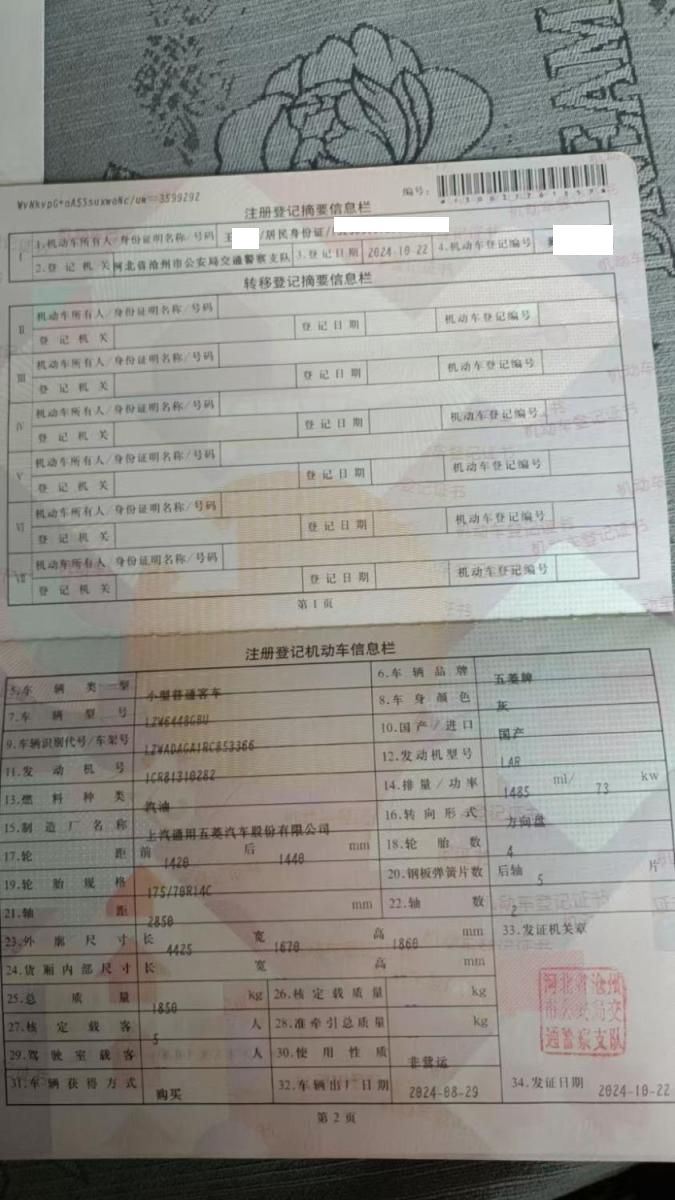 WvNkvpG+oA5SsuxwoNc/uw==3599292
编号:
注册登记摘要信息栏
I 1.机动车所有人/身份证明名称/号码 王 /居民身份证/
2.登记机关 河北省沧州市公安局交通警察支队 3.登记日期 2024-10-22 4.机动车登记编号
转移登记摘要信息栏
II 机动车所有人/身份证明名称/号码
登记机关 登记日期 机动车登记编号
III 机动车所有人/身份证明名称/号码
登记机关 登记日期 机动车登记编号
IV 机动车所有人/身份证明名称/号码
登记机关 登记日期 机动车登记编号
V 机动车所有人/身份证明名称/号码
登记机关 登记日期 机动车登记编号
VI 机动车所有人/身份证明名称/号码
登记机关 登记日期 机动车登记编号
VII 机动车所有人/身份证明名称/号码
登记机关 登记日期 机动车登记编号
第1页
注册登记机动车信息栏
5.车辆类型 小型普通客车 6.车辆品牌 五菱牌
7.车辆型号 LZW6448GBU 8.车身颜色 灰
9.车辆识别代号/车架号 LZWADAGA1RC853366 10.国产/进口 国产
11.发动机号 1CR81310282 12.发动机型号 LAR
13.燃料种类 汽油 14.排量/功率 1485 ml/ 73 kw
15.制造厂名称 上汽通用五菱汽车股份有限公司 16.转向形式 方向盘
17.轮距 前 1420 后 1440 mm 18.轮胎数 4
19.轮胎规格 175/70R14C 20.钢板弹簧片数 后轴 5 片
21.轴距 2850 mm 22.轴数 2
23.外廓尺寸 长 4425 宽 1670 高 1860 mm 33.发证机关章
24.货厢内部尺寸 长 宽 高 mm
25.总质量 1850 kg 26.核定载质量 -- kg
27.核定载客 5 人 28.准牵引总质量 -- kg
河北省沧州
市公安局交
通警察支队
29.驾驶室载客 人 30.使用性质 非营运
31.车辆获得方式 购买 32.车辆出厂日期 2024-08-29 34.发证日期 2024-10-22
第2页